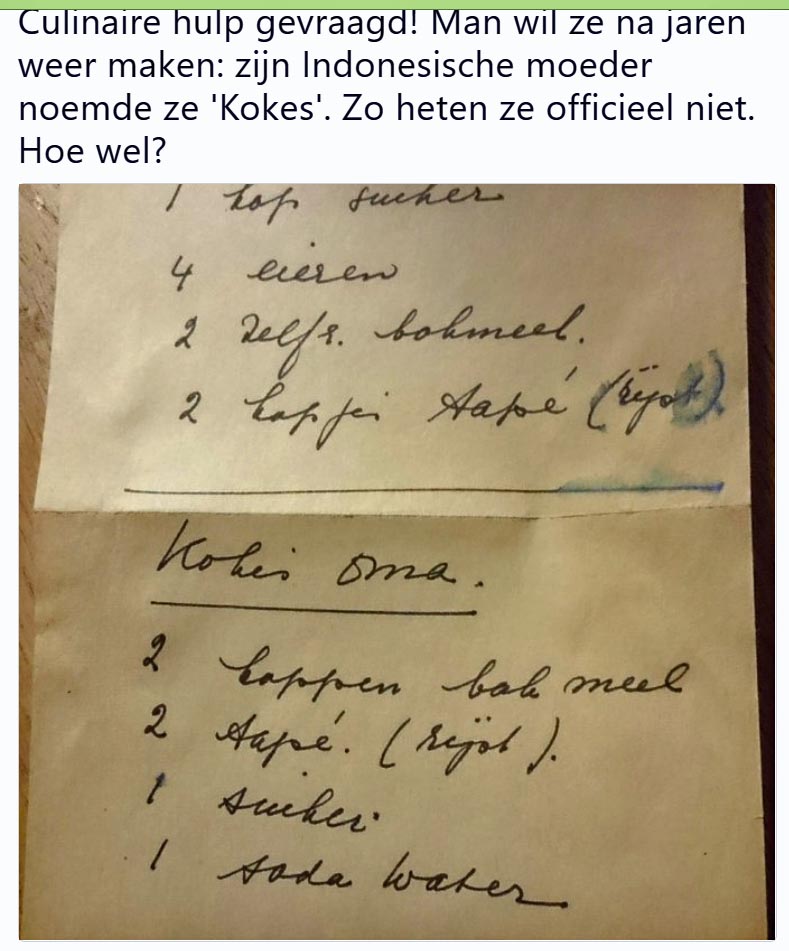 Culinaire hulp gevraagd! Man wil ze na jaren
weer maken: zijn Indonesische moeder
noemde ze 'Kokes'. Zo heten ze officieel niet.
Hoe wel?
1 kop suiker
4 eieren
2 zelfr. bakmeel.
2 kopjes Aapé (rijst)
Kokis oma.
2 koppen bak meel
2 Aapé. (rijst).
1 suiker
1 soda water